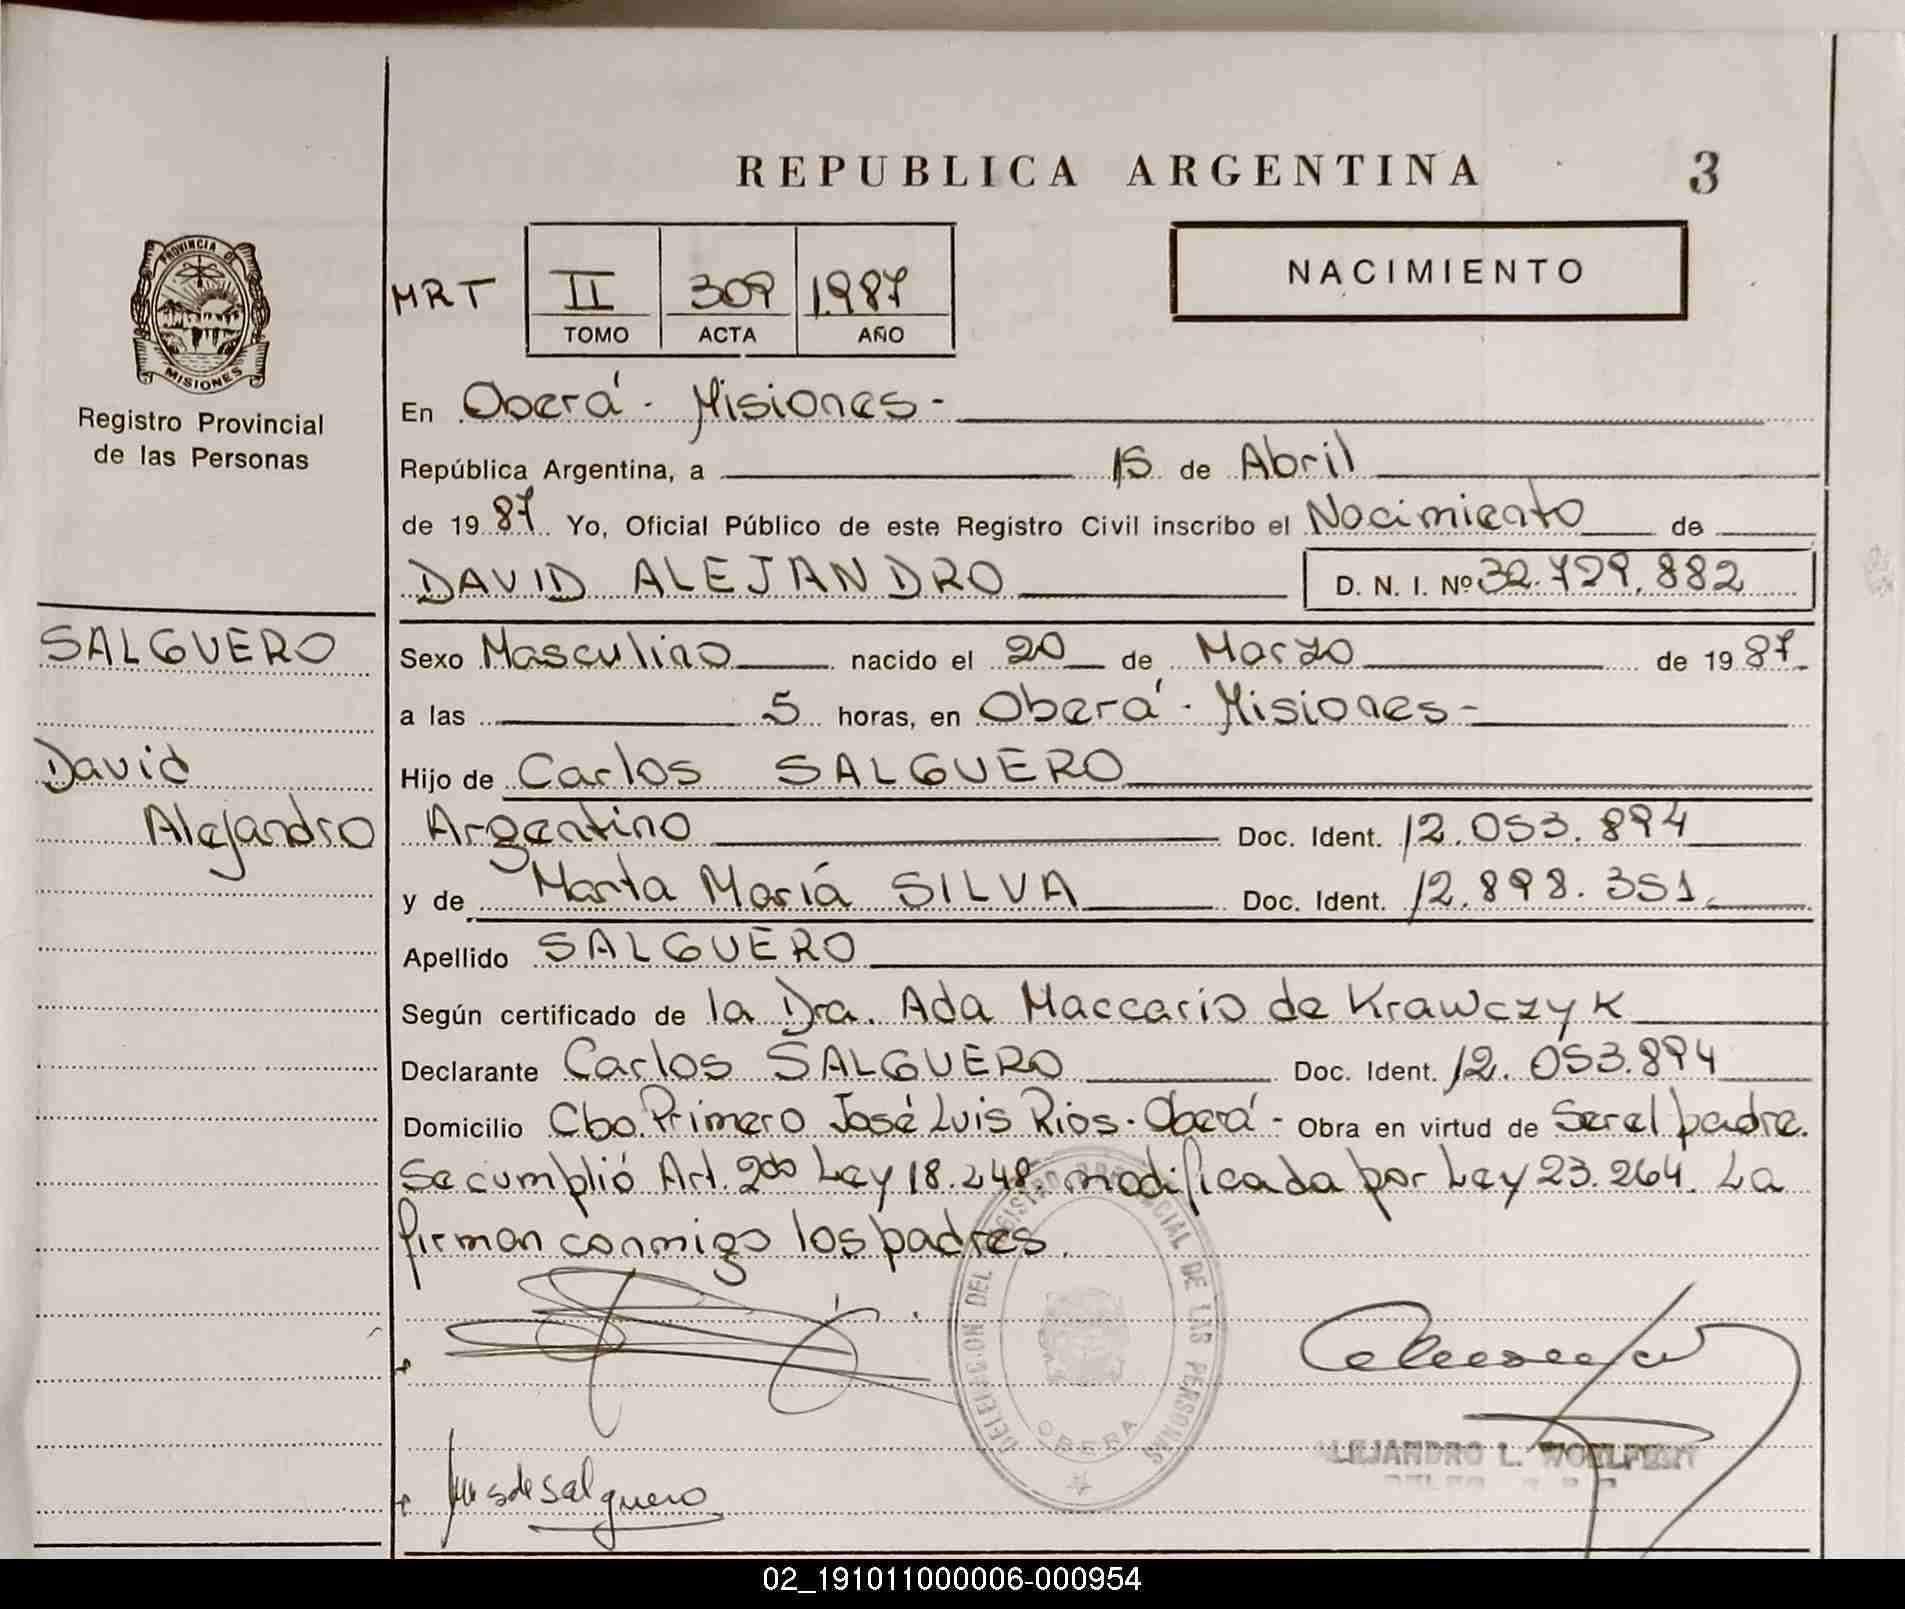 REPUBLICA ARGENTINA
3
PROVINCIA DE
MISIONES
Registro Provincial
de las Personas
NACIMIENTO
MRT
II 309 1.987
TOMO ACTA AÑO
En Oberá - Misiones -
República Argentina, a 15 de Abril
de 1987 Yo, Oficial Público de este Registro Civil inscribo el Nacimiento de
DAVID ALEJANDRO D. N. I. Nº 32.729.882
SALGUERO
David
Alejandro
Sexo Masculino nacido el 20 de Marzo de 1987
a las 5 horas, en Oberá - Misiones -
Hijo de Carlos SALGUERO
Argentino Doc. Ident. 12.053.894
y de Marta María SILVA Doc. Ident. 12.898.351
Apellido SALGUERO
Según certificado de la Dra. Ada Maccario de Krawczyk
Declarante Carlos SALGUERO Doc. Ident. 12.053.894
Domicilio Cbo. Primero José Luis Rios - Oberá - Obra en virtud de Ser el padre.
Se cumplió Art. 2do Ley 18.248. modificada por Ley 23.264. La
firman conmigo los padres.
DELEGACION DEL REGISTRO PROVINCIAL DE LAS PERSONAS
OBERA
de Salguero
ALEJANDRO L.
02_191011000006-000954